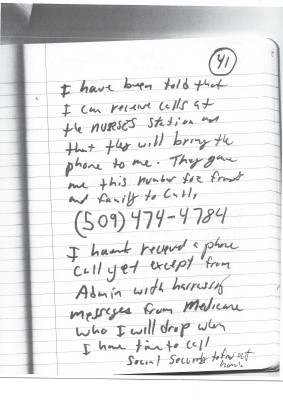 41
I have been told that
I can receive calls at
the NURSES Station and
that they will bring the
phone to me. They gave
me this number for friends
and family to call,
(509) 474-4784
I haven't received a phone
call yet except from
Admin with harrassing
messages from Medicare
who I will drop when
I have time to call
Social Security to